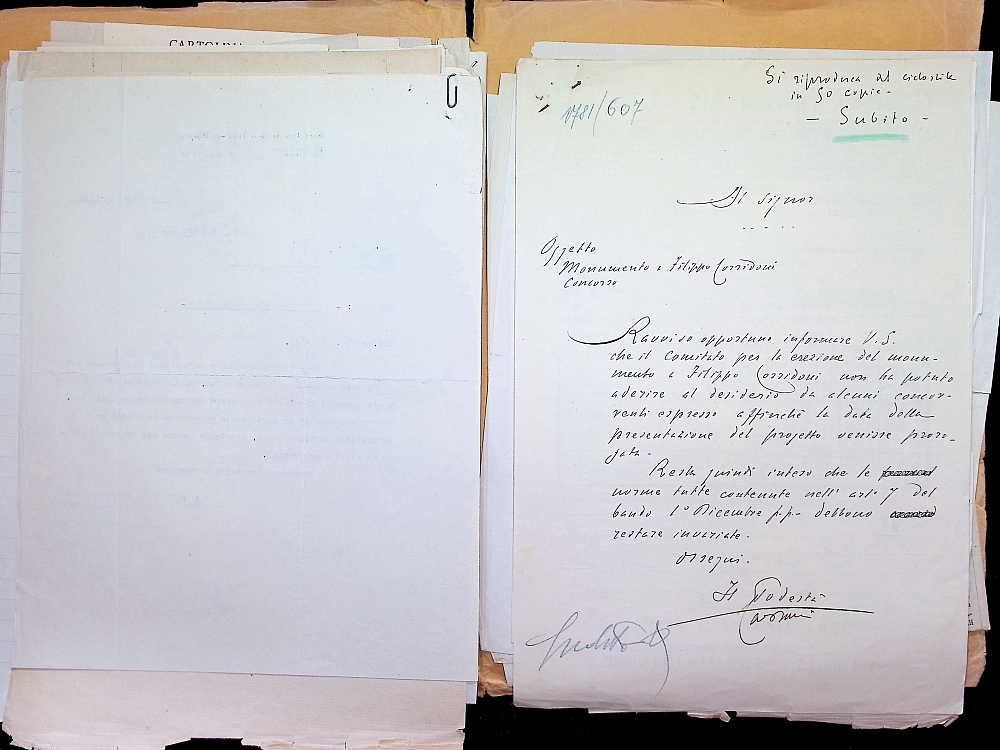 CARTOLINA
Si riproduca al ciclostile
in 50 copie -
- Subito -
1781/607
Al signor
.....
Oggetto
Monumento a Filippo Corridoni
Concorso
Ravviso opportuno informare V.S.
che il Comitato per la erezione del monu-
mento a Filippo Corridoni non ha potuto
aderire al desiderio da alcuni concor-
renti espresso affinchè la data della
presentazione del progetto venisse proro-
gata.
Resta quindi inteso che le
norme tutte contenute nell' art. 7 del
bando 1° Dicembre p.p. debbono
restare invariate.
Ossequi.
Il Podestà